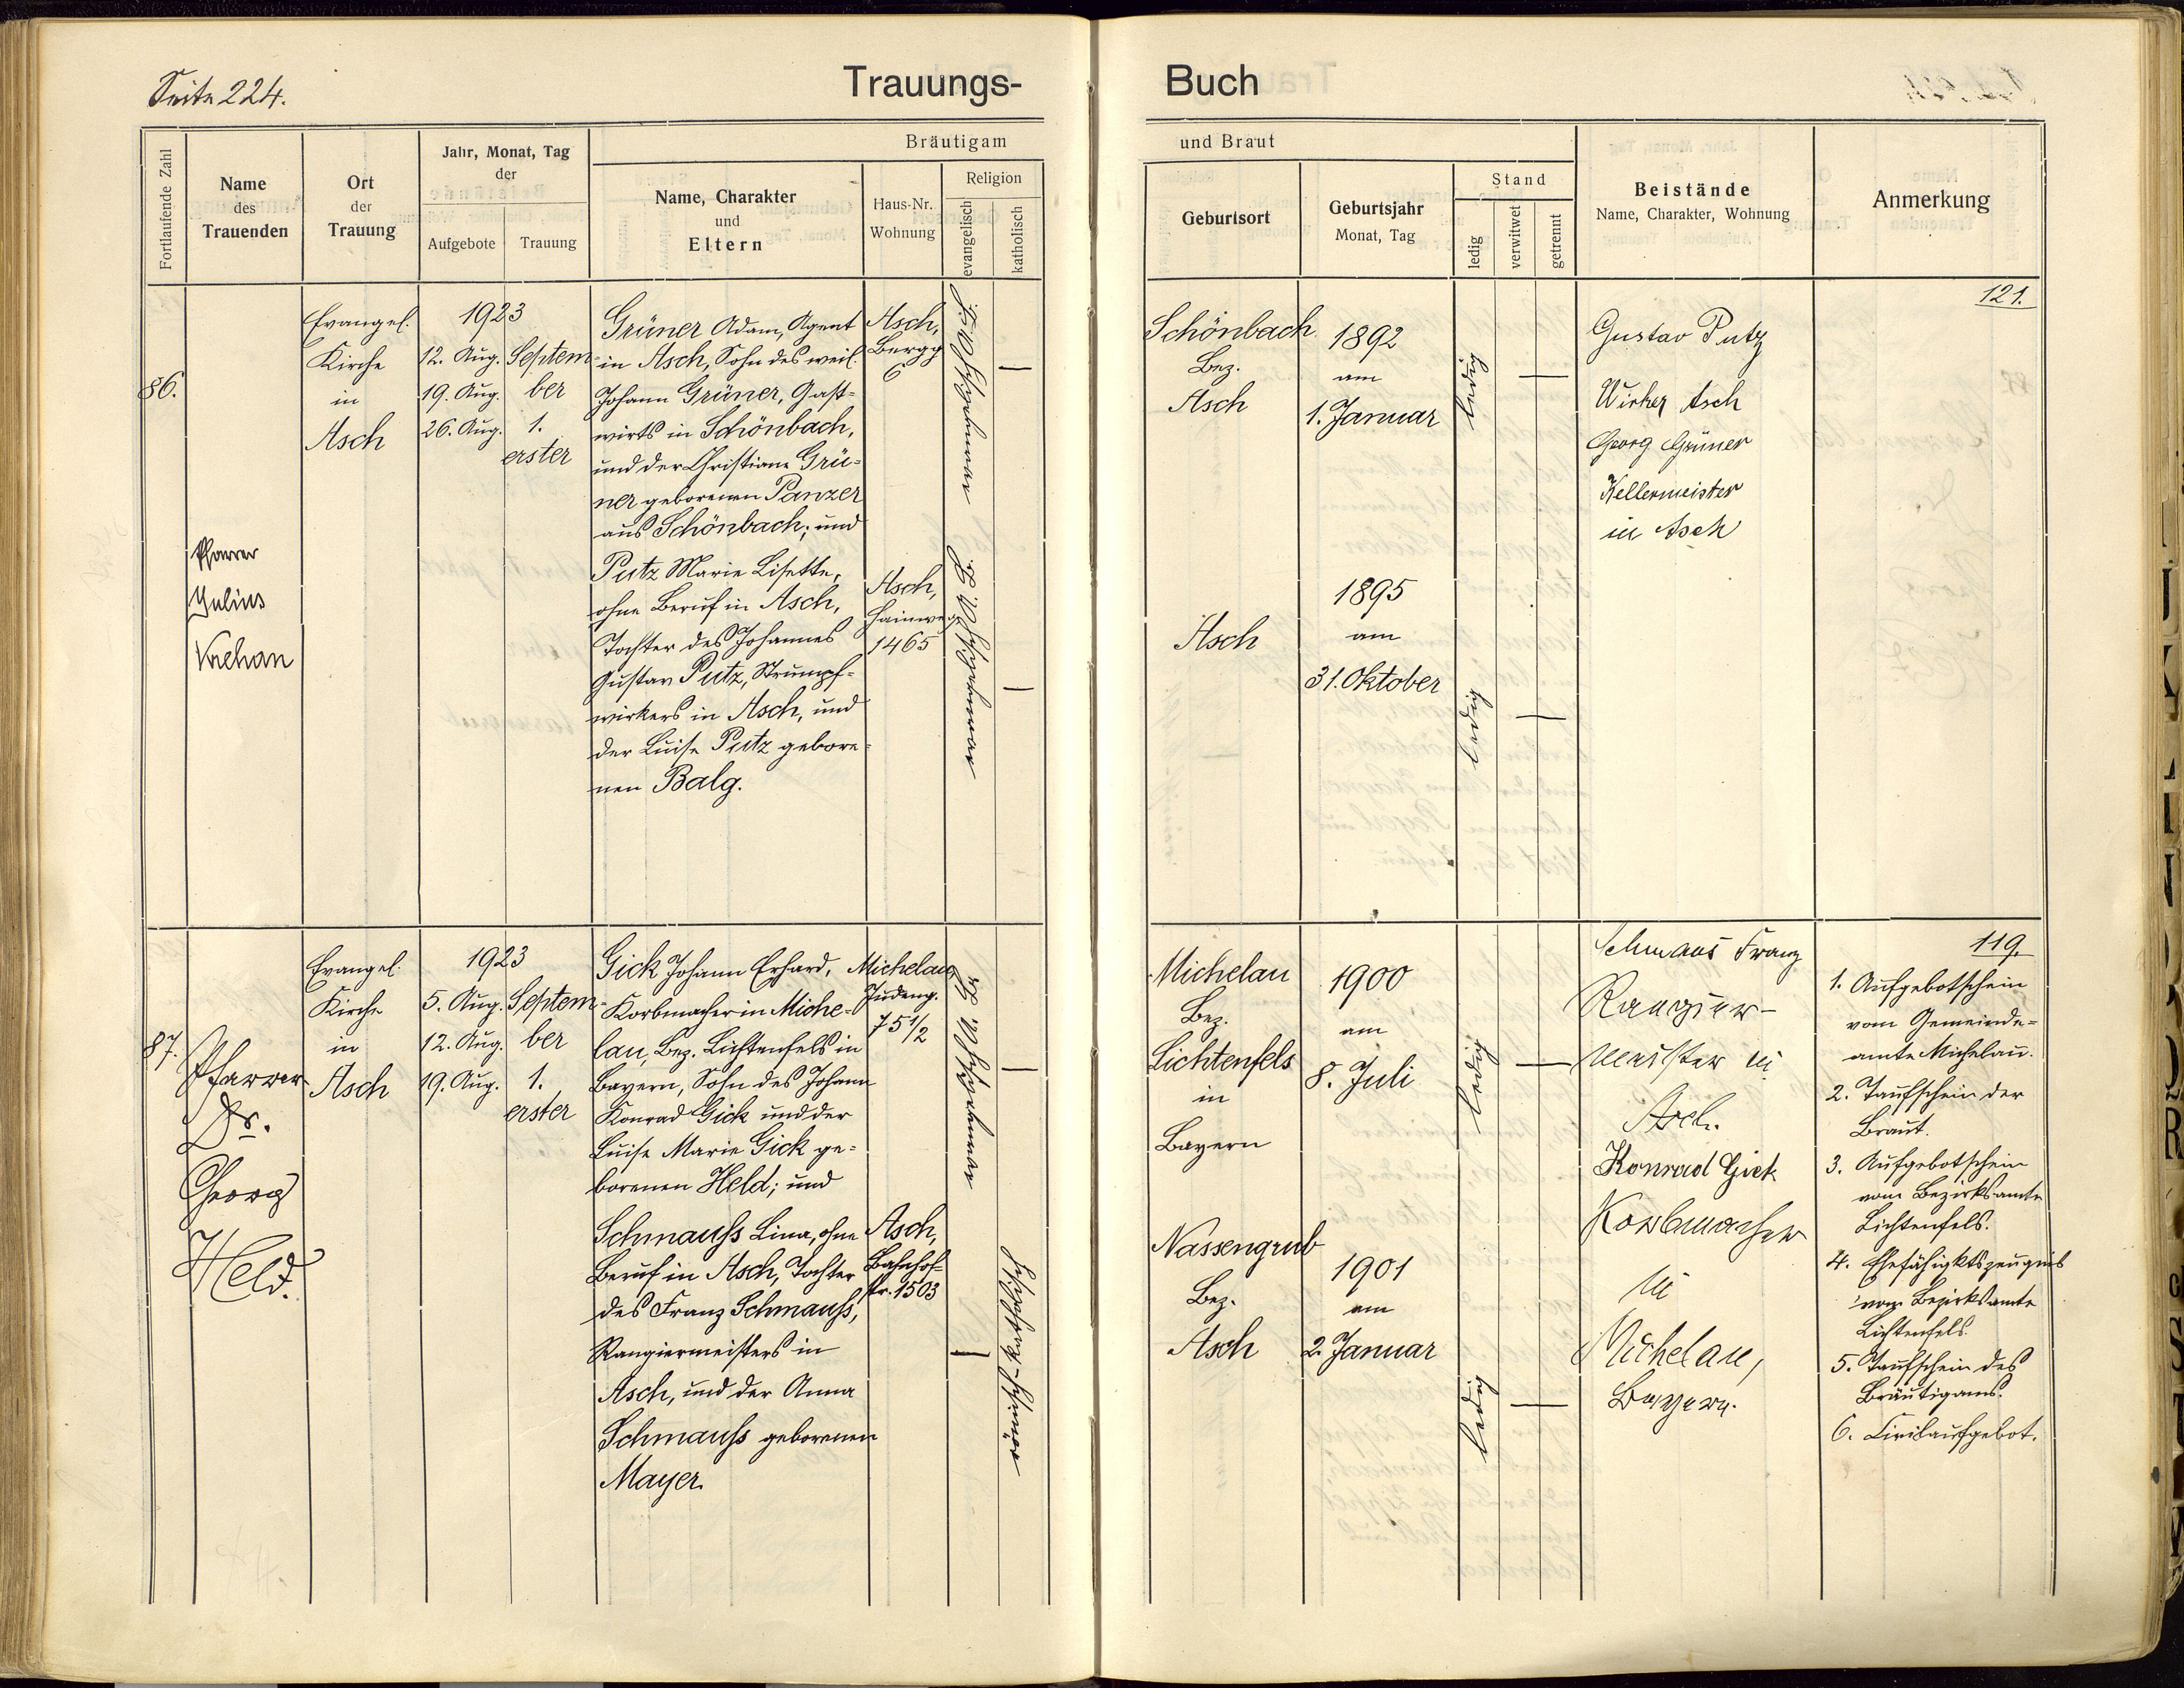 Seite 224.
Trauungs-
Buch
Fortlaufende Zahl
Name
des
Trauenden
Ort
der
Trauung
Jahr, Monat, Tag
der
Aufgebote
Trauung
Bräutigam
Name, Charakter
und
Eltern
Haus-Nr.
Wohnung
Religion
evangelisch
katholisch
und Braut
Geburtsort
Geburtsjahr
Monat, Tag
Stand
ledig
verwitwet
getrennt
Beistände
Name, Charakter, Wohnung
Anmerkung
86.
Pfarrer
Julius
Krehan
Evangel.
Kirche
in
Asch
1923
12. Aug.
19. Aug.
26. Aug.
Septem-
ber
1.
erster
Grüner Adam, Agent
in Asch, Sohn des weil.
Johann Grüner, Gast-
wirts in Schönbach,
und der Christiane Grü-
ner geborenen Panzer
aus Schönbach; und
Putz Marie Lisette,
ohne Beruf in Asch,
Tochter des Johannes
Gustav Putz, Strumpf-
wirkers in Asch, und
der Luise Putz gebore-
nen Balg.
Asch,
Bergg
6
Asch,
Hainweg
1465
Schönbach
Bez.
Asch
1892
am
1. Januar
ledig
Asch
1895
am
31. Oktober
ledig
Gustav Putz
Wirker Asch
Georg Grüner
Kellermeister
in Asch
121.
87.
Pfarrer
Dr.
Georg
Held.
Evangel.
Kirche
in
Asch
1923
5. Aug.
12. Aug.
19. Aug.
Septem-
ber
1.
erster
Gick Johann Erhard,
Korbmacher in Miche-
lau, Bez. Lichtenfels in
Bayern, Sohn des Johann
Konrad Gick und der
Luise Marie Gick ge-
borenen Held; und
Schmauss Lina, ohne
Beruf in Asch, Tochter
des Franz Schmauss,
Rangiermeisters in
Asch, und der Anna
Schmauss geborenen
Mayer.
Michelau,
Judeng.
75 1/2
Asch,
Bahnhof-
str. 1503
römisch-katholisch
Michelau
Bez.
Lichtenfels
in
Bayern
1900
am
8. Juli
ledig
Nassengrub
Bez.
Asch
1901
am
2. Januar
ledig
Schmaus Franz
Rangier-
meister in
Asch.
Konrad Gick
Korbmacher
in
Michelau,
Bayern.
119.
1. Aufgebotschein
vom Gemeinde-
amte Michelau.
2. Taufschein der
Braut.
3. Aufgebotschein
vom Bezirksamte
Lichtenfels.
4. Ehefähigktszeugnis
vom Bezirksamte
Lichtenfels.
5. Taufschein des
Bräutigams.
6. Civilaufgebot.